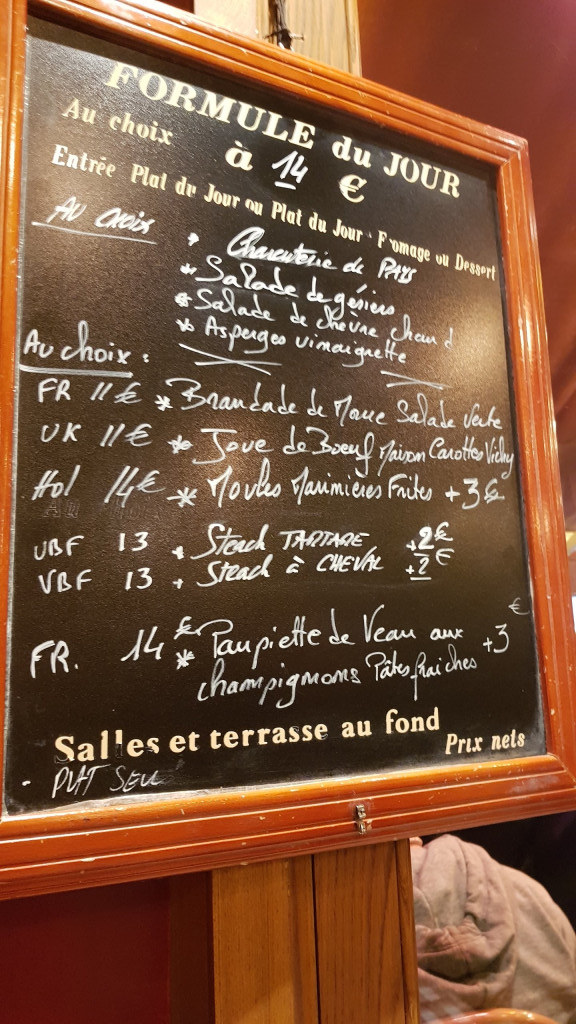 FORMULE du JOUR
Au choix à 14 €
Entrée Plat du Jour ou Plat du Jour Fromage ou Dessert
AU CHOIX * Charcuterie de PAYS
* Salade de gésiers
* Salade de chèvre chaud
* Asperges vinaigrette
Au choix :
FR 11 € * Brandade de Morue Salade Verte
UK 11 € * Joue de Boeuf Maison Carottes Vichy
Hol 14 € * Moules Marinières Frites + 3 €
UBF 13 * Steack TARTARE + 2 €
VBF 13 * Steack à CHEVAL + 2 €
FR. 14 € * Paupiette de Veau aux + 3 €
champignons Pâtes fraiches
Salles et terrasse au fond
Prix nets
- PLAT SEUL